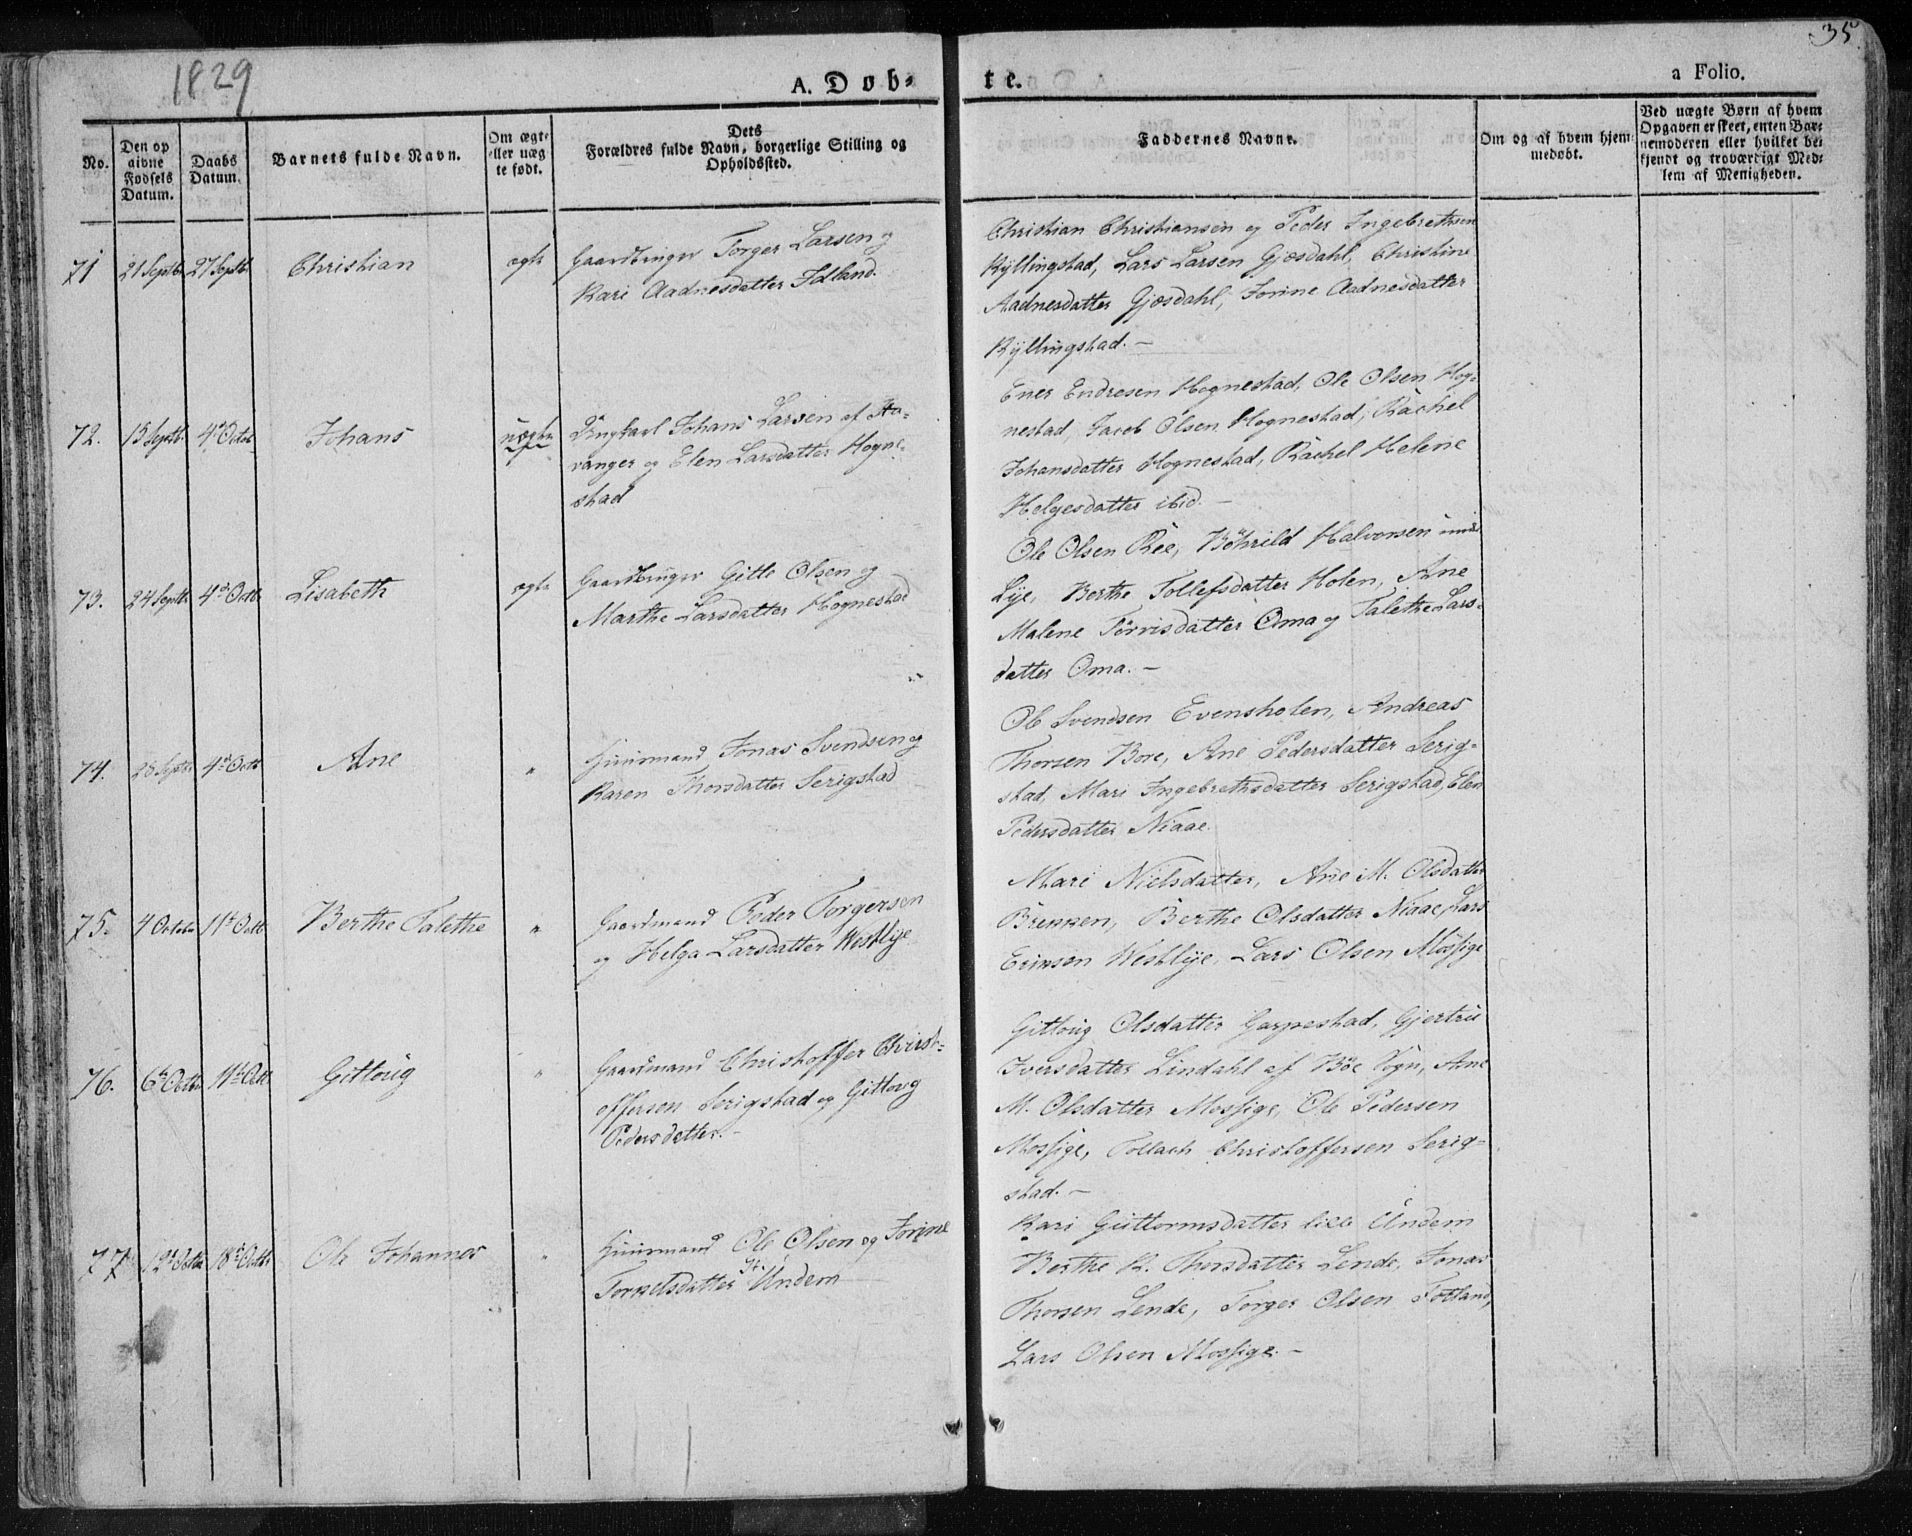 1829
A. Døb-
te.
35
a Folio.
No.
Den op
givne
Fødsels
Datum.
Daabs
Datum.
Barnets fulde Navn.
Om ægte
eller uæg
te født.
Dets
Forældres fulde Navn, borgerlige Stilling og
Opholdssted.
Faddernes Navne.
Om og af hvem hjem-
medøbt.
Ved uægte Børn af hvem
Opgaven er skeet, enten Bar-
nemoderen eller hvilket be-
kjendt og troværdigt Med-
lem af Menigheden.
71 21 Septb 27 Septb Christian ægte
Gaardbruger Torger Larsen og
Kari Aadnesdatter Idland.
Christian Christiansen og Peder Ingebrethsen
Kyllingstad, Lars Larsen Gjæsdahl, Christine
Aadnesdatter Gjæsdahl, Jorine Aadnesdatter
Kyllingstad. –
72. 15 Septb. 4de Octob Johans uægte
Ungkarl Johans Larsen af Sta-
vanger og Elen Larsdatter Hogne-
stad
Ener Endresen Hognestad, Ole Olsen Hog-
nestad, Jacob Olsen Hognestad, Rachel
Johansdatter Hognestad, Rachel Helene
Helgesdatter ibid. –
73. 24 Septbr 4de Octb. Lisabeth ægte
Gaardbruger Gitle Olsen og
Marthe Larsdatter Hognestad
Ole Olsen Ree, Bøhrild Halvorsen
Lye, Berthe Tollefsdatter Holen, Ane
Malene Tørrisdatter Oma og Talethe Lars-
datter Oma. –
74. 28 Septbr 4de Octb Ane "
Huusmand Jonas Svendsen og
Karen Thorsdatter Serigstad
Ole Svendsen Evensholen, Andreas
Thorsen Bore, Ane Pedersdatter Serig-
stad, Mari Ingebrethsdatter Serigstad, Elen
Pedersdatter Niaae.
75. 4 Octobr 11te Octb Berthe Talethe "
Gaardmand Peder Torgersen
og Helga Larsdatter Westlye
Mari Nielsdatter, Ane M. Olsdatter
Brekken, Berthe Olsdatter Niaae, Lars
Eriksen Westlye, Lars Olsen Mossige
76. 6te Octbr 11te Octb. Gitloug "
Gaardmand Christoffer Christ-
offersen Serigstad og Gitloug
Pedersdatter. –
Gitloug Olsdatter Garpestad, Gjertru
Iversdatter Lindahl af Bøe Sogn, Ane
M. Olsdatter Mossige, Ole Pedersen
Mossige, Tollach Christoffersen Serig-
stad. –
77 12te Octbr 18de Octbr Ole Johannes "
Huusmand Ole Olsen og Jorine
Torkelsdatter St. Undem
Kari Guttormsdatter lille Undem
Berthe K. Thorsdatter Lende, Jonas
Thorsen Lende, Torger Olsen Fotland,
Lars Olsen Mossige. –